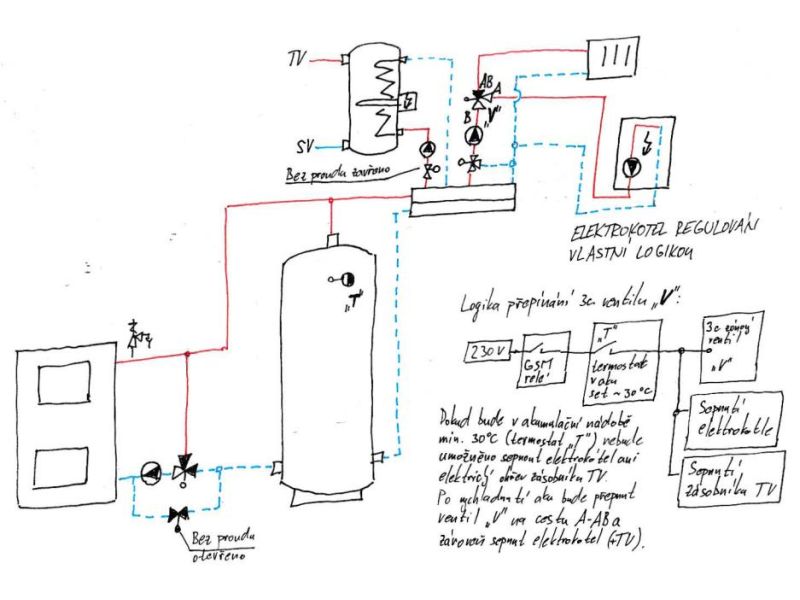 TV
SV
Bez proudu zavřeno
AB
A
B
"V"
ELEKTROKOTEL REGULOVÁN
VLASTNÍ LOGIKOU
"T"
Logika přepínání 3c. ventilu "V":
230V
GSM
relé
"T"
termostat
v aku
set ~30°C
3c zónový
ventil
"V"
Sepnutí
elektrokotle
Sepnutí
zásobníku TV
Pokud bude v akumulační nádobě
min. 30°C (termostat "T") nebude
umožněno sepnout elektrokotel ani
elektrický ohřev zásobníku TV.
Po vychladnutí aku bude přepnut
ventil "V" na cestu A-AB a
zároveň sepnut elektrokotel (+TV).
Bez proudu
otevřeno